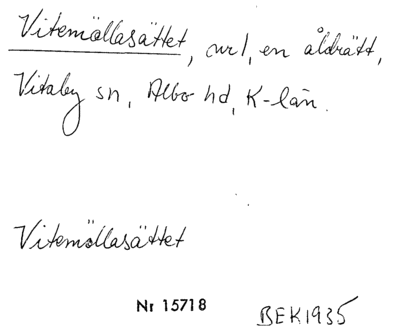 Vitemöllasättet, url, en åldrätt,
Vitaby sn, Albo hd, K-län.
Vitemöllasättet
Nr 15718
BEK1935